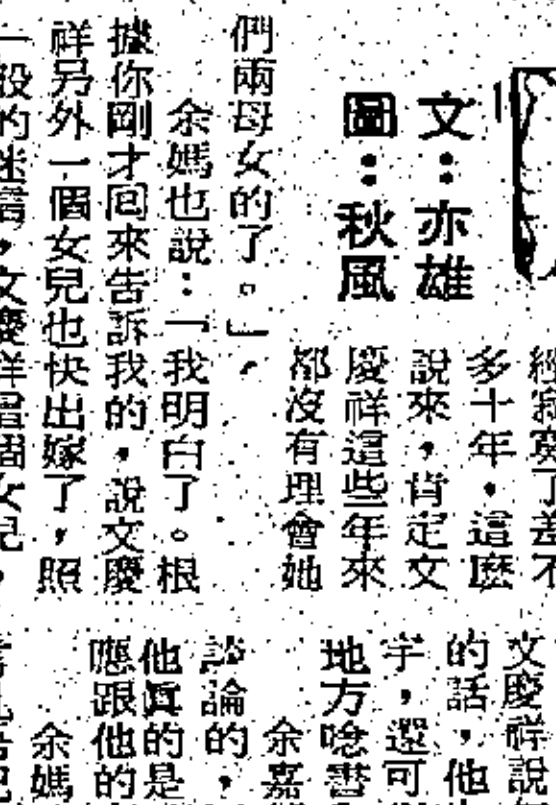 文：亦雄
圖：秋風
經寂寞了差不
多十年，這麽
說來，肯定文
慶祥這些年來
都沒有理會她
們兩母女的了。」
余媽也說：「我明白了。根
據你剛才回來告訴我的，說文慶
祥另外一個女兒也快出嫁了，照
一般的迷信，文慶祥這個女兒，
文慶祥說
的話，他
字，還可
地方唸書
余嘉
談論的，
他真的是
應跟他的
余媽